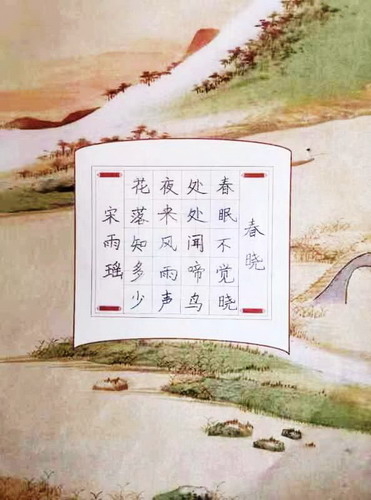 春晓
春眠不觉晓
处处闻啼鸟
夜来风雨声
花落知多少
宋雨瑶